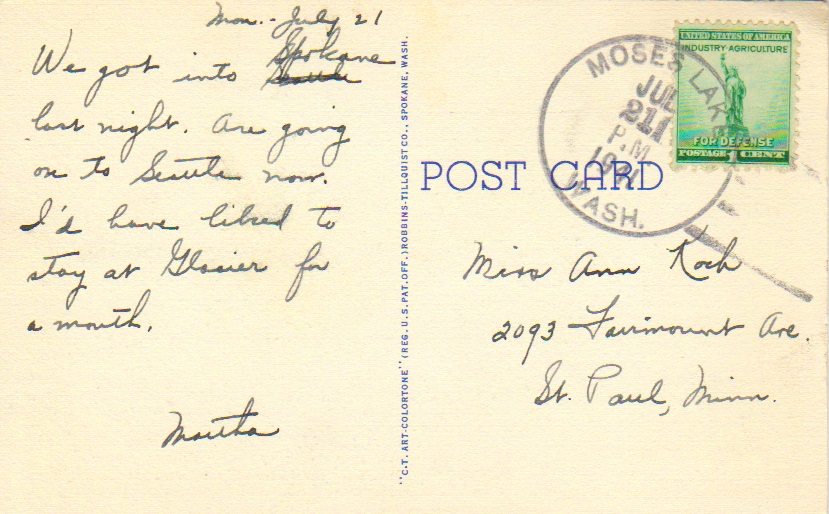 Mon. - July 21
We got into Spokane Seattle
last night. Are going
on to Seattle now.
I'd have liked to
stay at Glacier for
a month.
Martha
"C.T. ART-COLORTONE" (REG. U.S. PAT. OFF.) ROBBINS-TILLQUIST CO., SPOKANE, WASH.
POST CARD
MOSES LAKE
JUL
21
P.M.
1941
WASH.
UNITED STATES OF AMERICA
INDUSTRY AGRICULTURE
FOR DEFENSE
POSTAGE 1 CENT
Miss Ann Koch
2093 Fairmount Ave.
St. Paul, Minn.